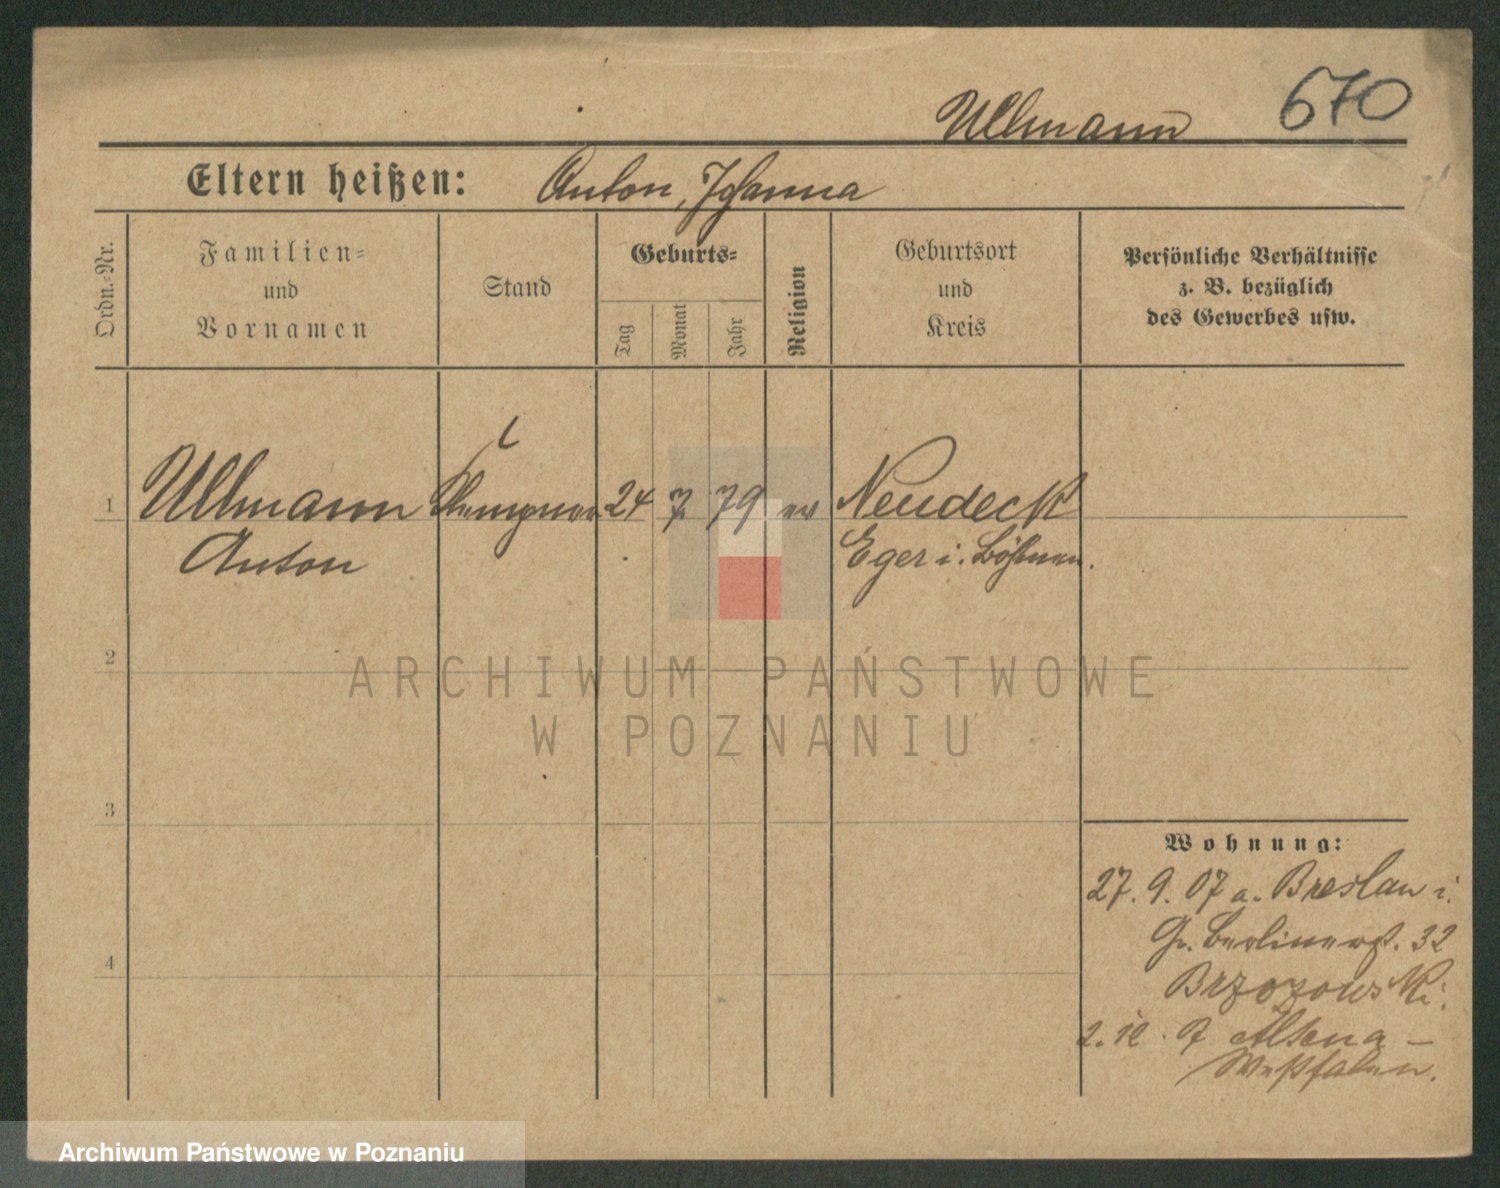 Ullmann 670
Eltern heißen: Anton, Johanna
Ordn.-Nr.
Familien-
und
Vornamen
Stand
Geburts-
Tag
Monat
Jahr
Religion
Geburtsort
und
Kreis
Persönliche Verhältnisse
z. B. bezüglich
des Gewerbes usw.
1 Ullmann 24 7. 79 ev Neudeck
Anton Eger i. Böhmen.
2
ARCHIWUM PAŃSTWOWE
W POZNANIU
3
Wohnung:
27. 9. 07 a. Breslau i.
Gr. Berlinerst. 32
4
Brzozowski.
2. 12. 7 Altena –
Westfalen.
Archiwum Państwowe w Poznaniu